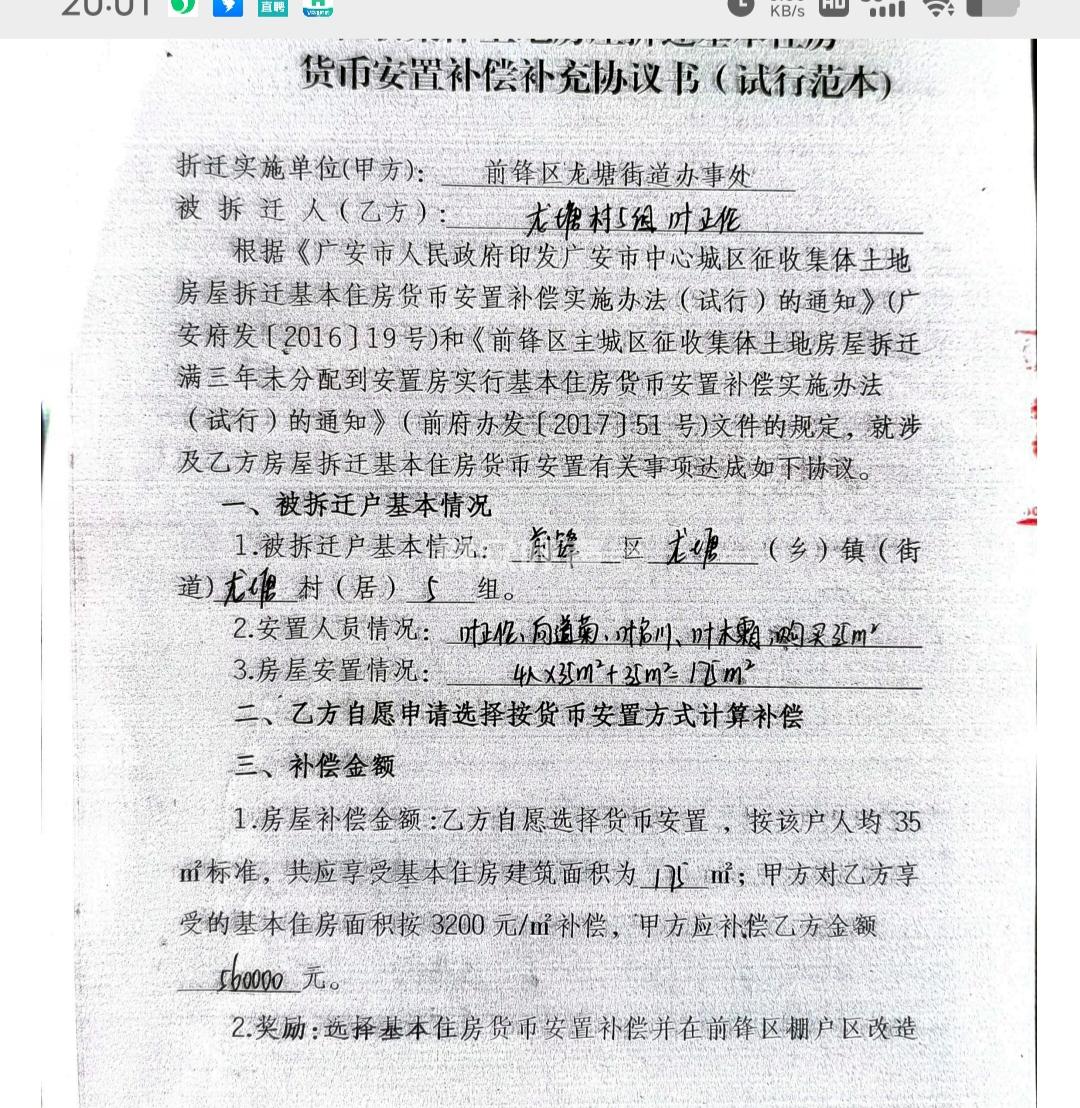 20:01
直聘
KB/s
HD
货币安置补偿补充协议书（试行范本）
拆迁实施单位(甲方)： 前锋区龙塘街道办事处
被 拆 迁 人（乙方）： 龙塘村5组 叶正伦
根据《广安市人民政府印发广安市中心城区征收集体土地
房屋拆迁基本住房货币安置补偿实施办法（试行）的通知》(广
安府发〔2016〕19号)和《前锋区主城区征收集体土地房屋拆迁
满三年未分配到安置房实行基本住房货币安置补偿实施办法
（试行）的通知》（前府办发〔2017〕51 号)文件的规定，就涉
及乙方房屋拆迁基本住房货币安置有关事项达成如下协议。
一、被拆迁户基本情况
1.被拆迁户基本情况： 前锋 区 龙塘 （乡）镇（街
道) 龙塘 村（居） 5 组。
2.安置人员情况： 叶正伦、向道菊、叶川、叶木 购买35m²
3.房屋安置情况： 4人×35m²+35m²=175m²
二、乙方自愿申请选择按货币安置方式计算补偿
三、补偿金额
1.房屋补偿金额:乙方自愿选择货币安置，按该户人均 35
㎡标准，共应享受基本住房建筑面积为 175 ㎡；甲方对乙方享
受的基本住房面积按 3200 元/㎡补偿，甲方应补偿乙方金额
560000 元。
2.奖励:选择基本住房货币安置补偿并在前锋区棚户区改造